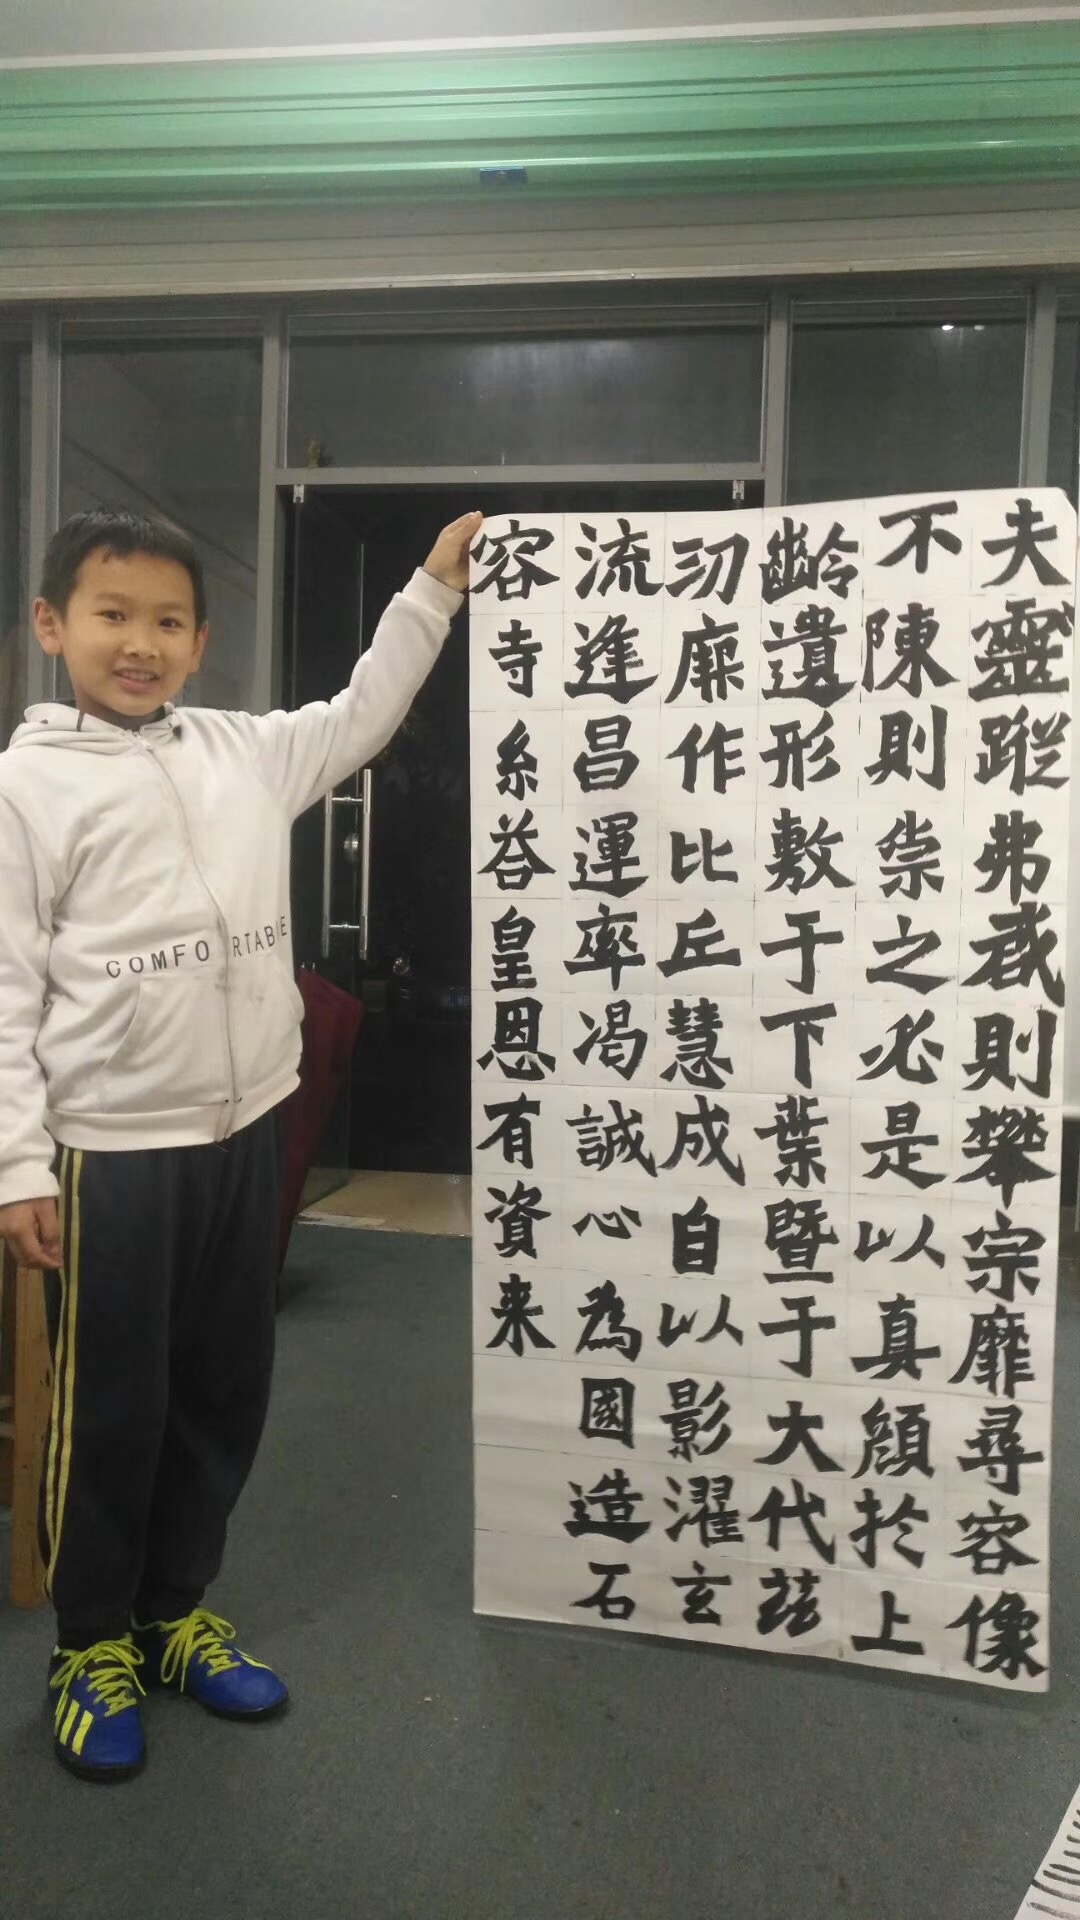 COMFORTABLE
夫靈蹤弗啟則攀宗靡尋容像
不陳則崇之必是以真顏於上
齡遺形敷于下葉暨于大代茲
作比丘慧成自以影濯玄
流逢昌運率渴誠心為國造石
容寺糸荅皇恩有資来